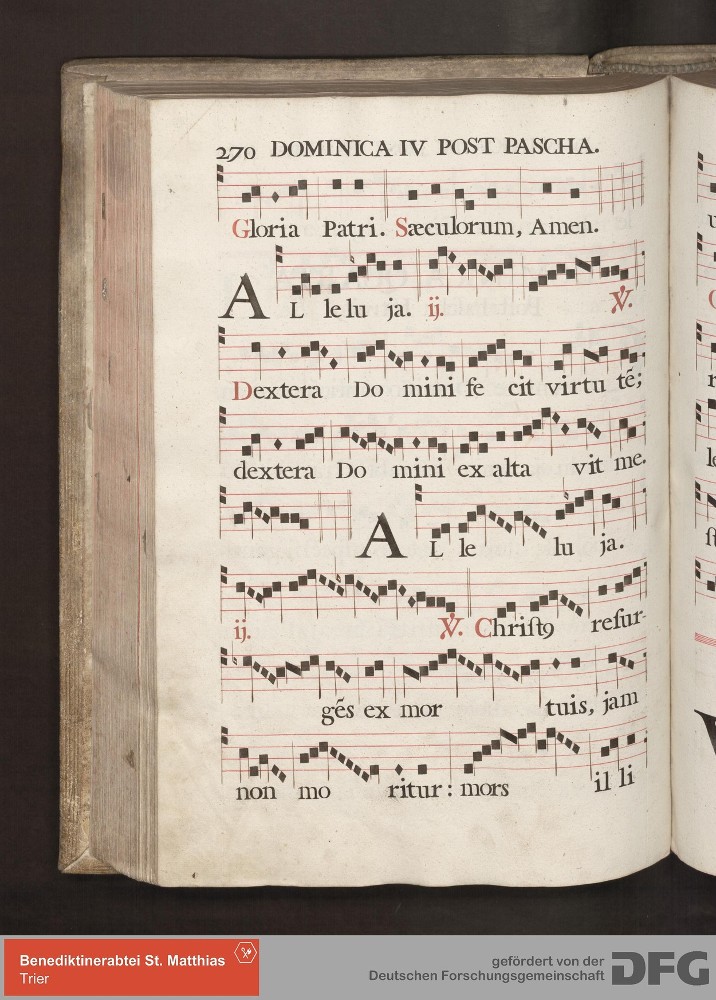 270 DOMINICA IV POST PASCHA.
Gloria Patri. Sæculorum, Amen.
AL le lu ja. ij. ℣.
Dextera Do mini fe cit virtu tē;
dextera Do mini ex alta vit me.
AL le lu ja.
ij. ℣. Chriſtꝰ reſur-
gēs ex mor tuis, jam
non mo ritur: mors il li
Benediktinerabtei St. Matthias
Trier
gefördert von der
Deutschen Forschungsgemeinschaft
DFG